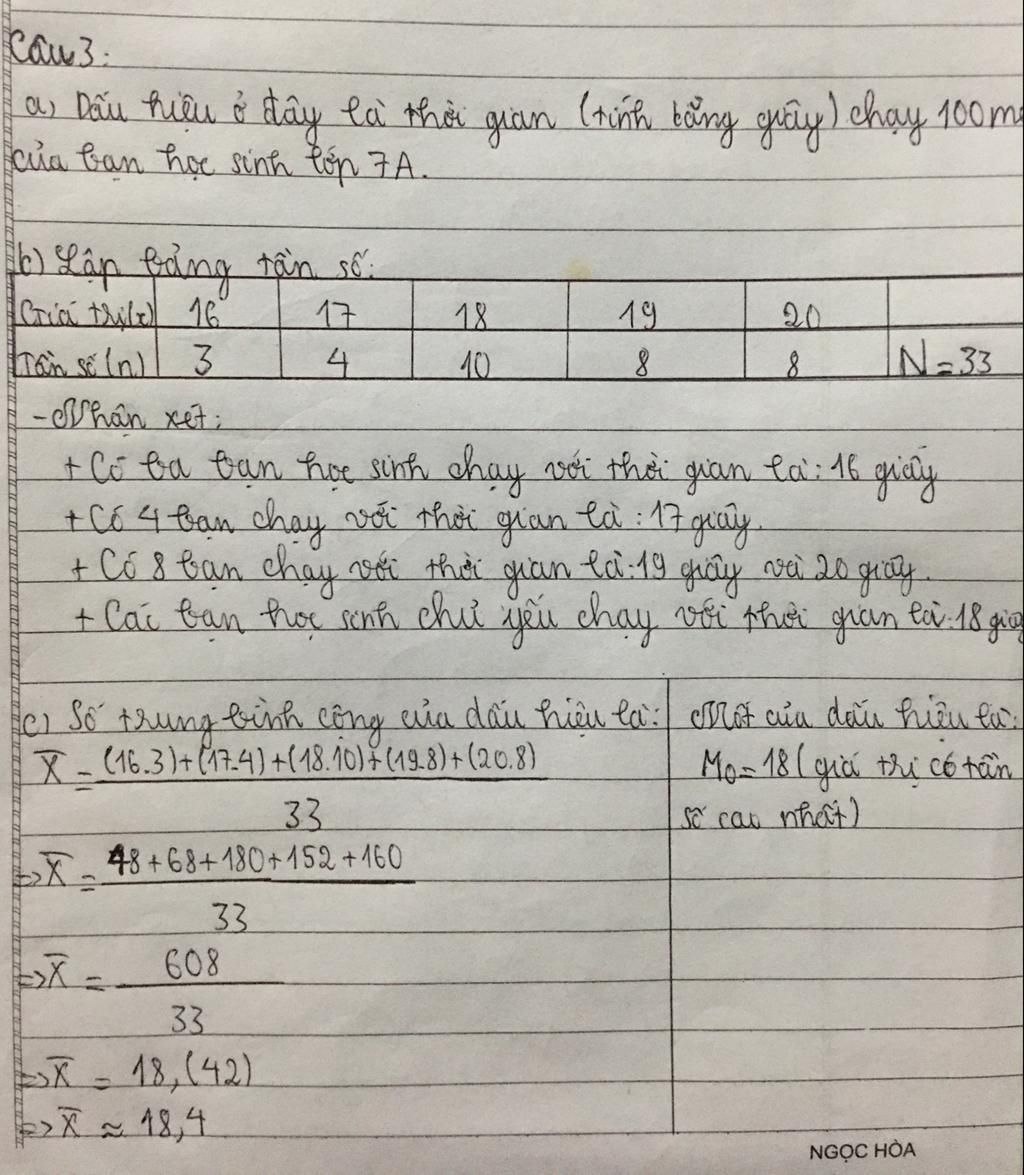 Câu 3:
a) Dấu hiệu ở đây là thời gian (tính bằng giây) chạy 100m
của bạn học sinh lớp 7A.
b) Lập bảng tần số:
Giá trị(x) 16 17 18 19 20
Tần số (n) 3 4 10 8 8 N=33
- Nhận xét:
+ Có ba bạn học sinh chạy với thời gian là: 16 giây
+ Có 4 bạn chạy với thời gian là: 17 giây.
+ Có 8 bạn chạy với thời gian là: 19 giây và 20 giây.
+ Các bạn học sinh chủ yếu chạy với thời gian là: 18 giây
c) Số trung bình cộng của dấu hiệu là:
X̄ = (16.3)+(17.4)+(18.10)+(19.8)+(20.8)
33
=> X̄ = 48+68+180+152+160
33
=> X̄ = 608
33
=> X̄ = 18,(42)
=> X̄ ≈ 18,4
Mốt của dấu hiệu là:
M₀=18 (giá trị có tần
số cao nhất)
NGỌC HÒA